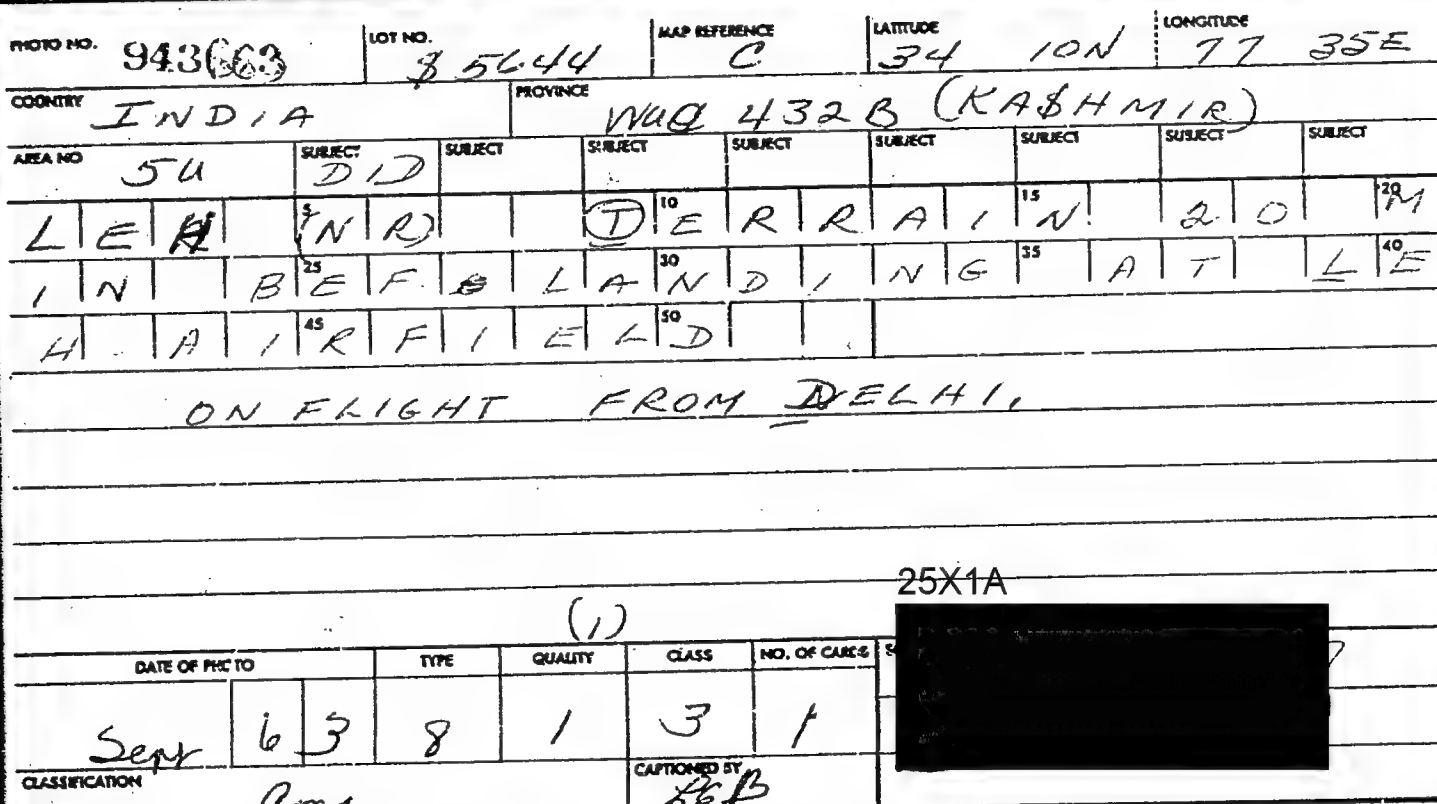 PHOTO NO. 943663 LOT NO. $ 5644 MAP REFERENCE C LATITUDE 34 10N LONGITUDE 77 35E
COUNTRY INDIA PROVINCE 432B (KA$HMIR)
AREA NO 54 SUBJECT DID SUBJECT SUBJECT SUBJECT SUBJECT SUBJECT SUBJECT SUBJECT
LEH 5 (NR) TERRAIN 10 15 20 M 20
IN BEF LANDING AT LE 25 30 35 40
H AIRFIELD 45 50
ON FLIGHT FROM DELHI.
25X1A
(1)
DATE OF PHOTO TYPE QUALITY CLASS NO. OF CARES
Sept 63 8 1 3 1
CLASSIFICATION CAPTIONED BY